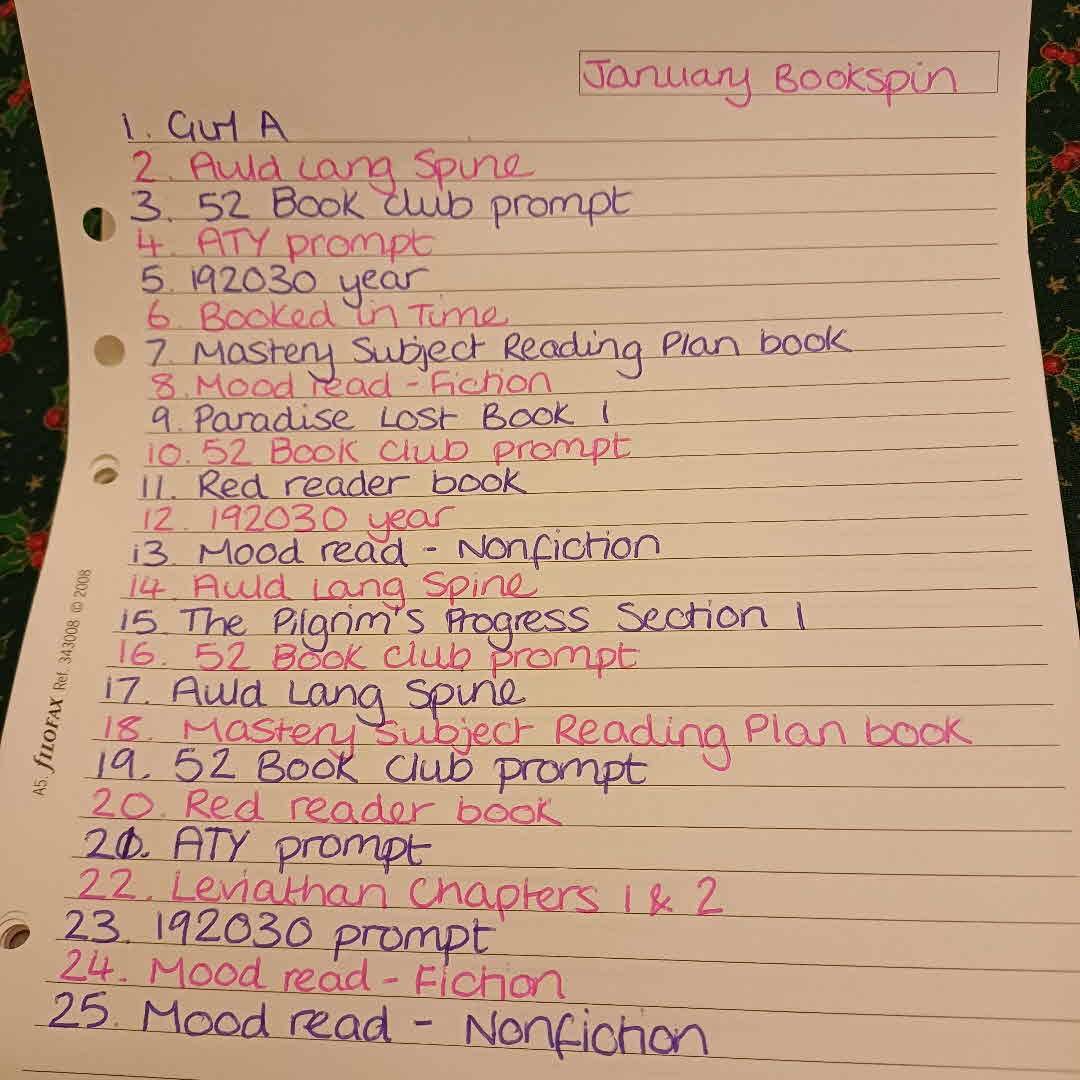 January Bookspin
1. Girl A
2. Auld Lang Spine
3. 52 Book Club prompt
4. ATY prompt
5. 192030 year
6. Booked in Time
7. Mastery Subject Reading Plan book
8. Mood read - Fiction
9. Paradise Lost Book 1
10. 52 Book Club prompt
11. Red reader book
12. 192030 year
13. Mood read - Nonfiction
14. Auld Lang Spine
15. The Pilgrim's Progress Section 1
16. 52 Book Club prompt
17. Auld Lang Spine
18. Mastery Subject Reading Plan book
19. 52 Book Club prompt
20. Red reader book
21. ATY prompt
22. Leviathan Chapters 1 & 2
23. 192030 prompt
24. Mood read - Fiction
25. Mood read - Nonfiction
A5. FILOFAX Ref. 343008 © 2008